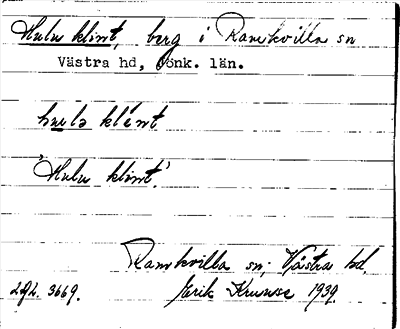 Hulu klint, berg i Ramkvilla sn
Västra hd, Jönk. län.
hulə klint
'Hulu klint.'
Ramkvilla sn; Västra hd.
3669. Erik Krusse 1939.